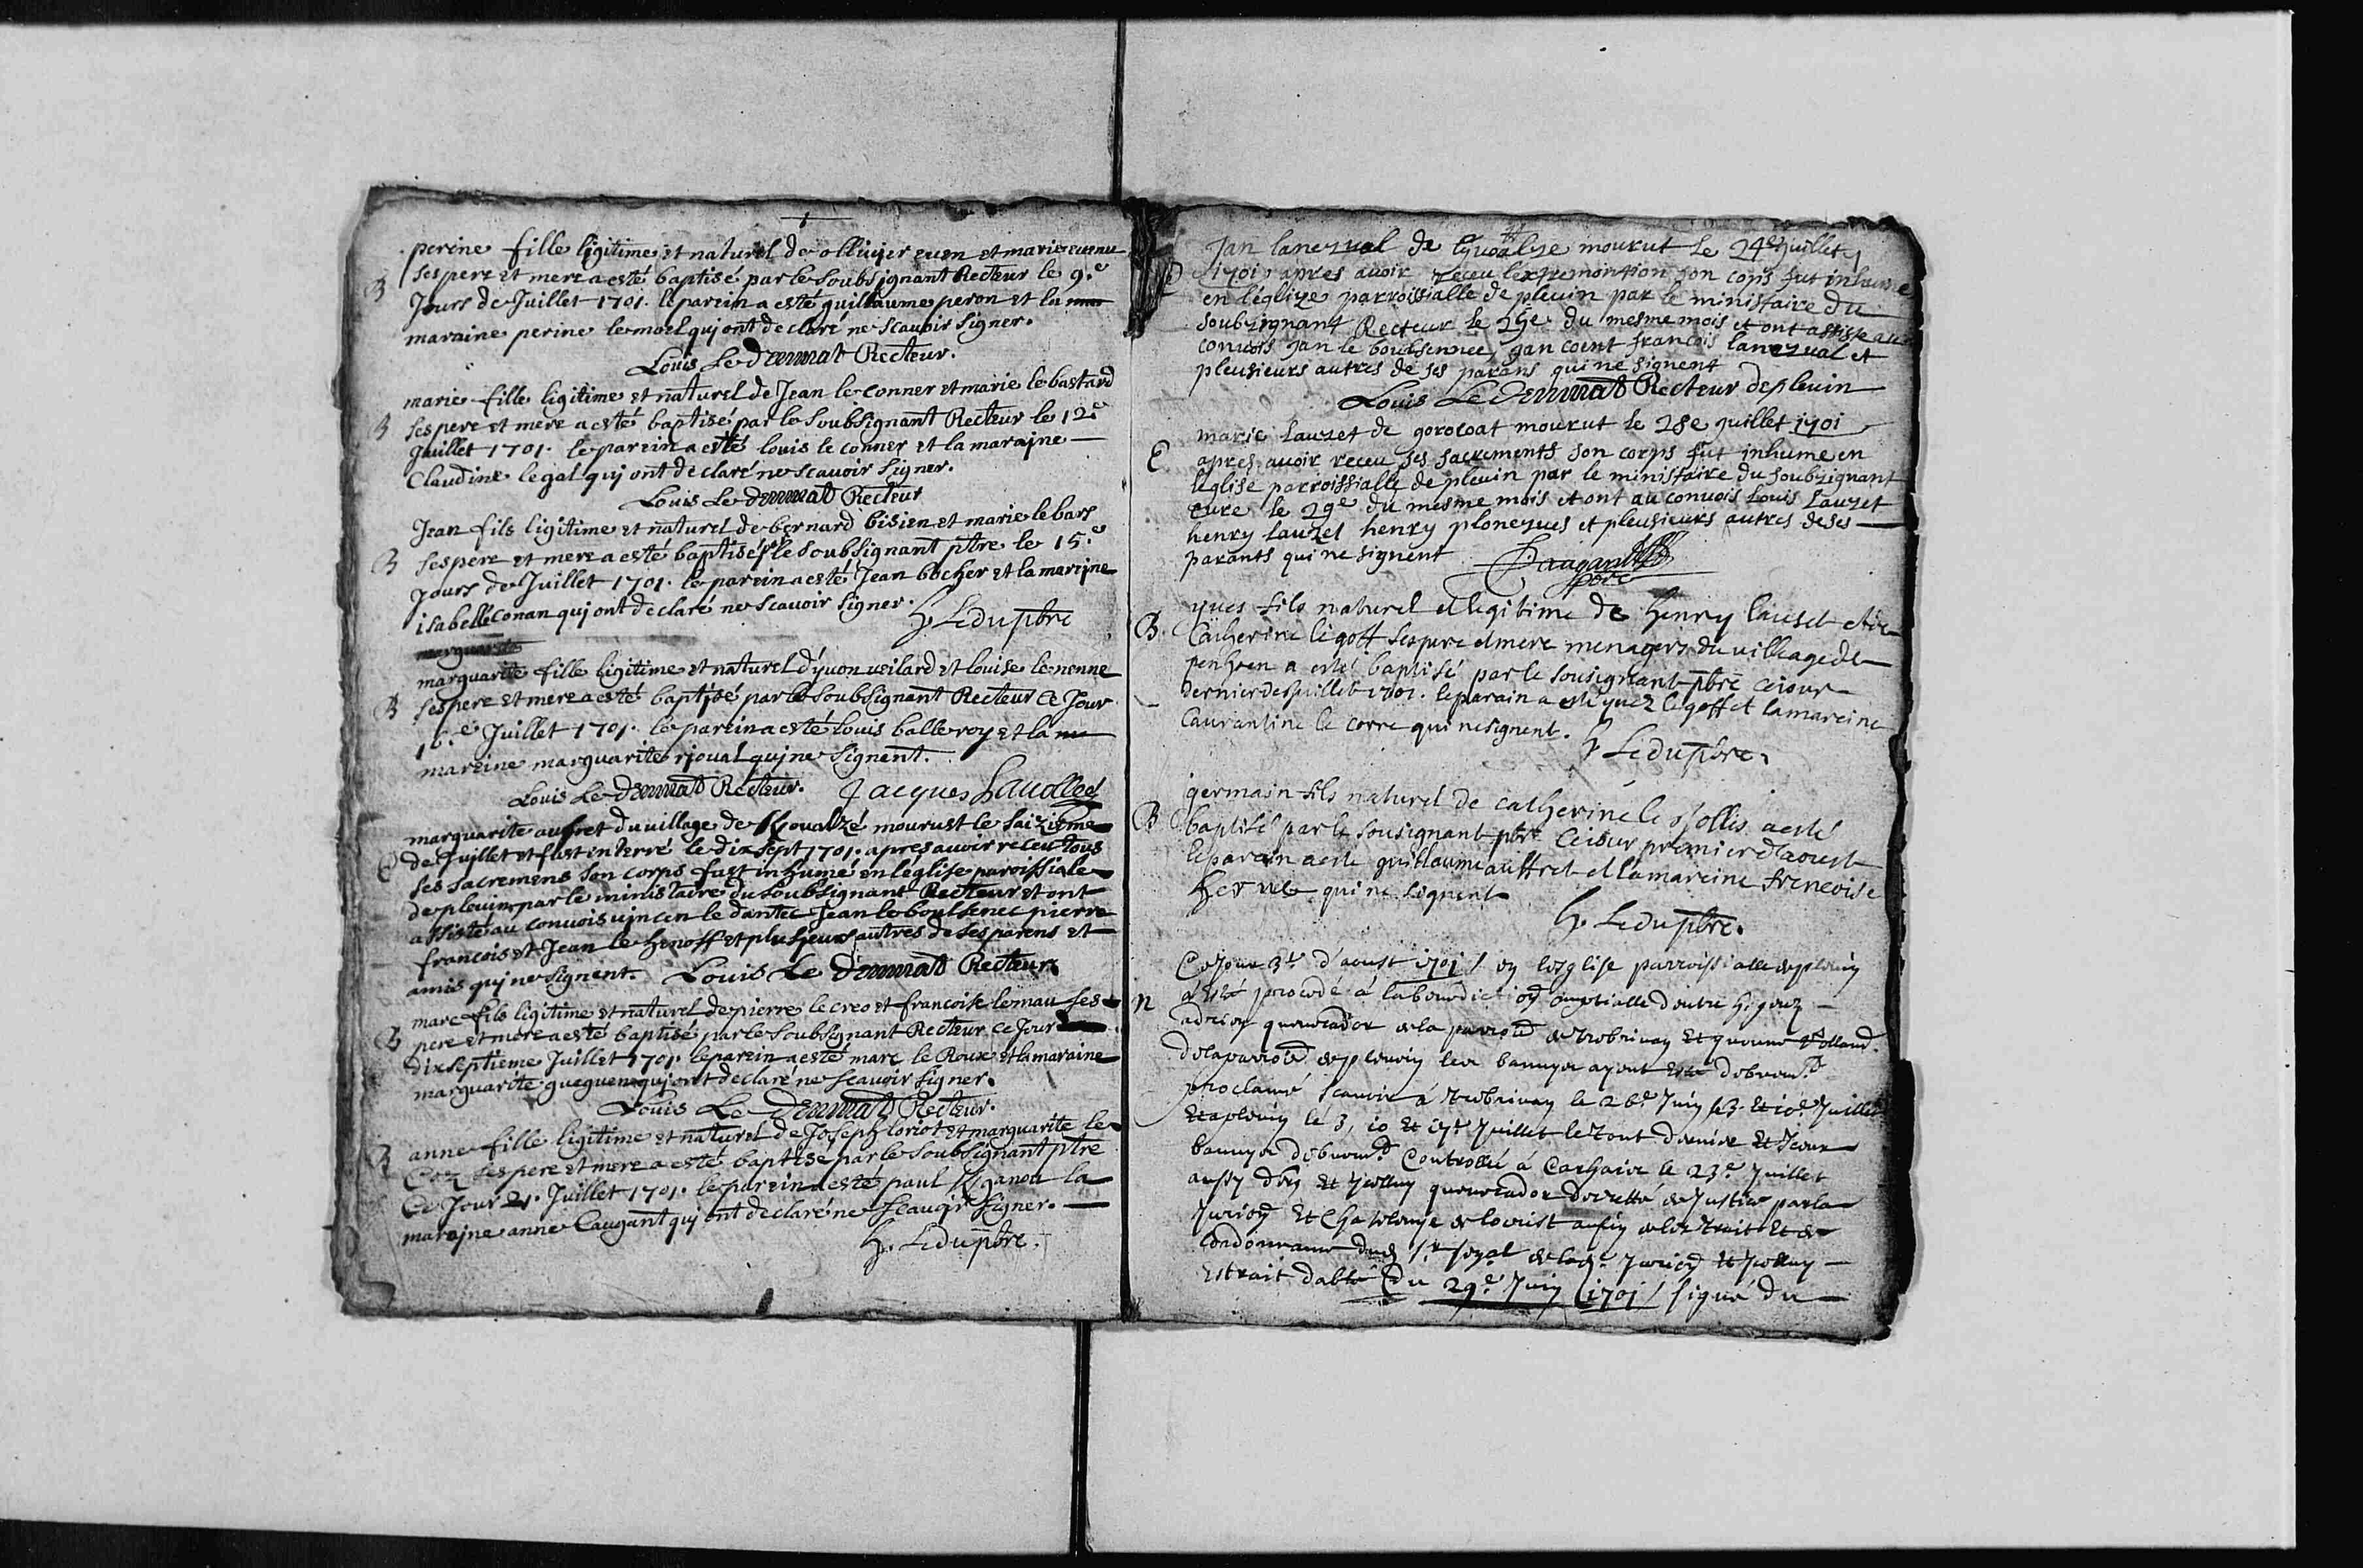 perine fille ligitime et naturel de ollivier euen et marie euenu
B ses pere et mere a esté baptisé par le soubsignant Recteur le 9.e
Jours de Juillet 1701. le parein a esté guillaume peron et la
maraine perine le moel quj ont declaré ne scauoir signer.
Louis Le Dermat Recteur.
marie fille ligitime et naturel de Jean le conner et marie le bastard
B ses pere et mere a esté baptisé par le soubsignant Recteur le 12e
Juillet 1701. le parein a esté louis le conner et la marajne
Claudine le gal quj ont declaré ne scauoir signer.
Louis Le Dermat Recteur
Jean fils ligitime et naturel de bernard bisien et marie le bars
B ses pere et mere a esté baptisé p le soubsignant ptre le 15.e
Jours de Juillet 1701. le parein a esté Jean bocher et la marejne
isabelle Conan quj ont declaré ne scauoir signer.
h. Ledu pbre
marguarite
marguarite fille ligitime et naturel d'yuon ueilard et louise le nenne
B ses pere et mere a esté baptisé par le soubsignant Recteur ce Jour
16.e Juillet 1701. le parein a esté louis balleroy et la
mareine marguarite rioual quj ne signent.
Louis Le Dermat Recteur. Jacques
marguarite aufret du uillage de Kgoualzé mourust le saizieme
E de Juillet et fust enterré le dix sept 1701. apres auoir receu tous
ses sacremens son corps fust inhumé en l'eglise paroissiale
de pleuin par le ministaire du soubsignant Recteur et ont
assisté au conuois vincen le dantec Jean le boulsenec pierre
francois et Jean le henoff et plusieurs autres de ses parens et
amis quj ne signent. Louis Le Dermat Recteur
marc fils ligitime et naturel de pierre le creo et francoise le mau ses
B pere et mere a esté baptisé par le soubsignant Recteur ce Jour
dix septieme Juillet 1701. le parein a esté marc le Roux et la maraine
marguarite gueguen quj ont declaré ne scauoir signer.
Louis Le Dermat Recteur.
anne fille ligitime et naturel de Joseph loriot et marguarite le
B Coz ses pere et mere a esté baptise par le soubsignant ptre
Ce Jour 21. Juillet 1701. le parein a esté paul la
marajne anne Caugant quj ont declaré ne scauoir signer.
h. Ledu pbre.
Jan lanezual de mourut le 24e Juillet
1701 apres auoir receu l'extremontion son corps fut inhume
en l'eglize parroissialle de pleuin par le ministaire du
soubzignant Recteur le 25e du mesme mois et ont assiste au
conuois Jan le boulsennec, Jan coent francois lanezual et
pleusieurs autres de ses parans qui ne signent
Louis Le Dermat Recteur de pleuin
marie Lauzet de gorocoat mourut le 28e Juillet 1701
E apres auoir receu ses sacrements son corps fut inhume en
l'eglise parroissialle de pleuin par le ministaire du soubzignant
cure le 29e du mesme mois et ont au conuois Louis Lauzet
henry Lauzet henry plonezues et pleusieurs autres de ses
parants qui ne signent
yues fils naturel et legitime de henry lauset et de
B. Catherine le goff ses pere et mere menagers du uillage de
penhoen a esté baptisé par le sousignant pbre ce iour
dernier de Juillet 1701. le parain a esté yuez le goff et la mareine
Caurantine le corre qui ne signent.
h Ledu pbre.
germain fils naturel de catherine le a esté
B baptisé par le sousignant pbre ce iour premier d'aoust
le parain a esté guillaume auffret et la mareine frencoise
herue qui ne signent
h. Ledu pbre.
Ce Jour 3e d'aoust 1701 en l'esglise parroissialle de pleuin
n a esté procedé à la benediction nuptialle d'entre
de la parroisse de trebriuan Et
de la parroisse de pleuin les bannyes ayant esté
proclamé scauoir à trebriuan le 26e Juin le 3 Et 10e Juillet
Et a pleuin le 3, 10 Et 17e Juillet le tout
bannyes Controllé à Carhaix le 23e Juillet
de Justice par la
Et
Extrait du 29e Juin 1701 signé du